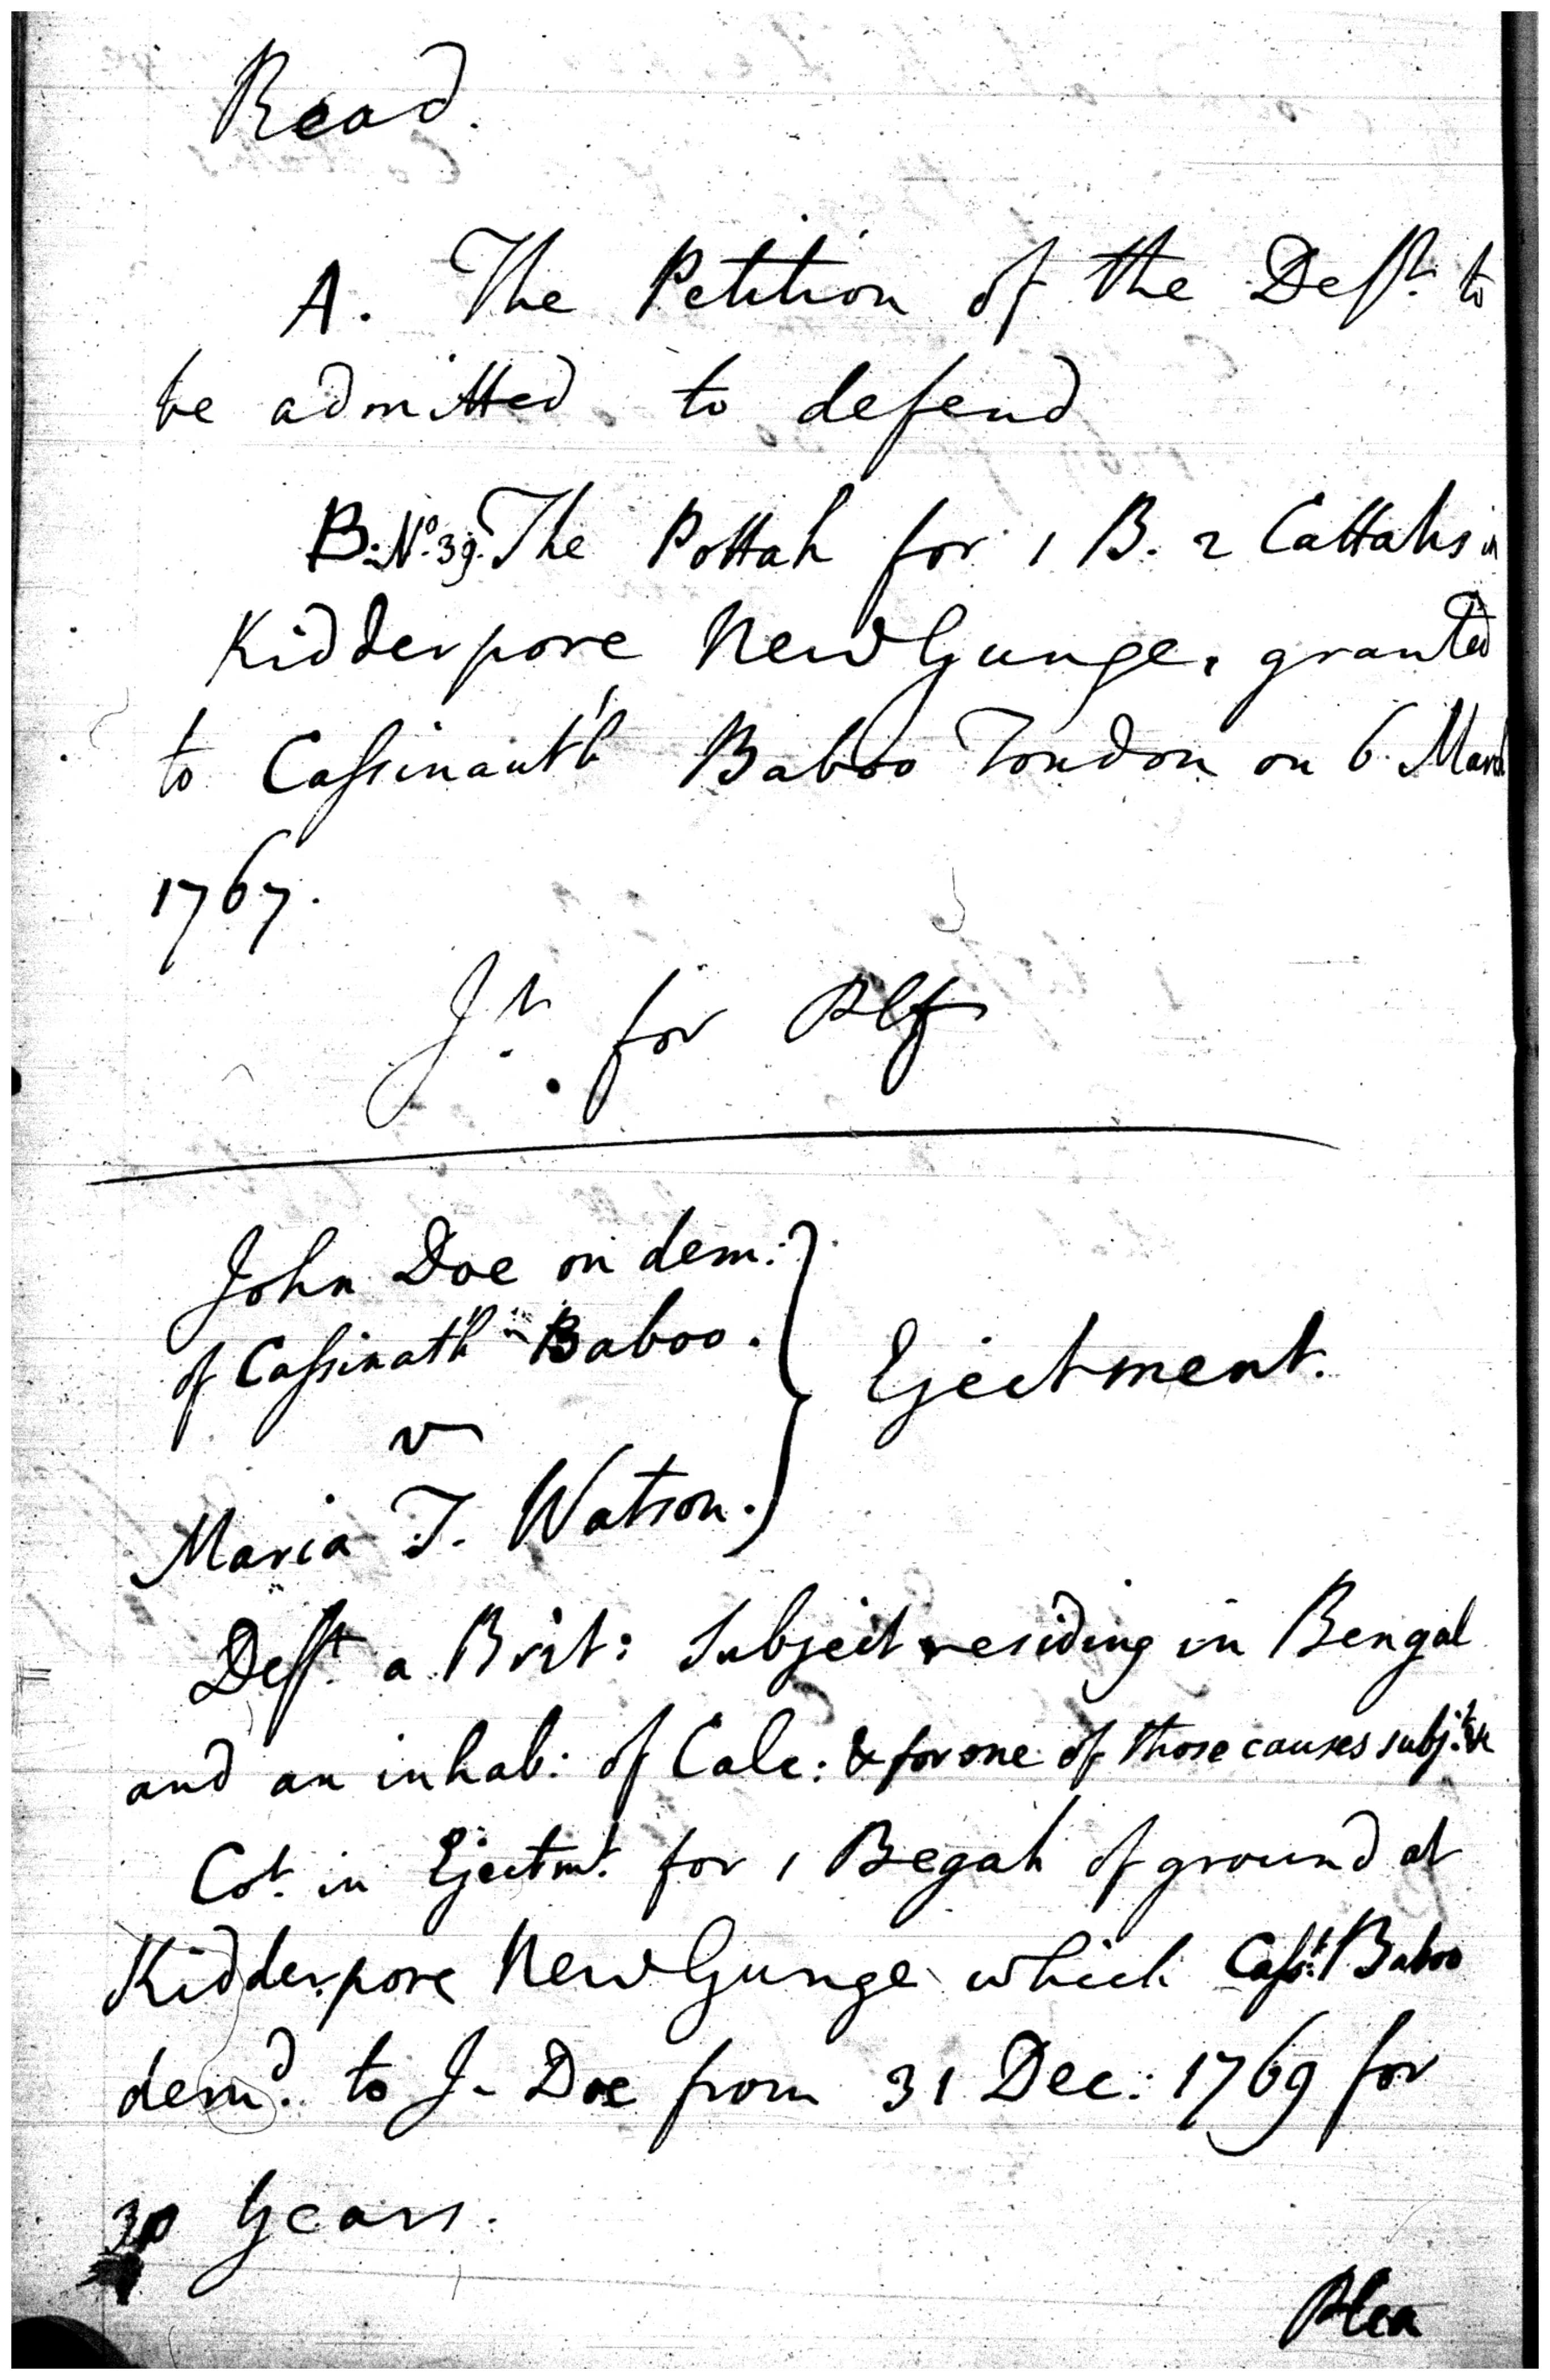 Read.
A. The Petition of the Defft. to
be admitted to defend
B. No. 39. The Pottah for 1 B. 2 Cattahs in
Kidderpore New Gunge, granted
to Cassinauth Baboo Tondon on 6. March
1767.
Jt. for Plf
John Doe on dem:
of Cassinath Baboo.
v
Maria T. Watson.
Ejectment.
Defft. a Brit: Subject residing in Bengal
and an inhab: of Calc: & for one of those causes subj.t
Cot. in Ejectmt. for 1 Begah of ground at
Kidderpore New Gunge which Casst. Baboo
demd. to J. Doe from 31 Dec: 1769 for
30 Years.
Plea